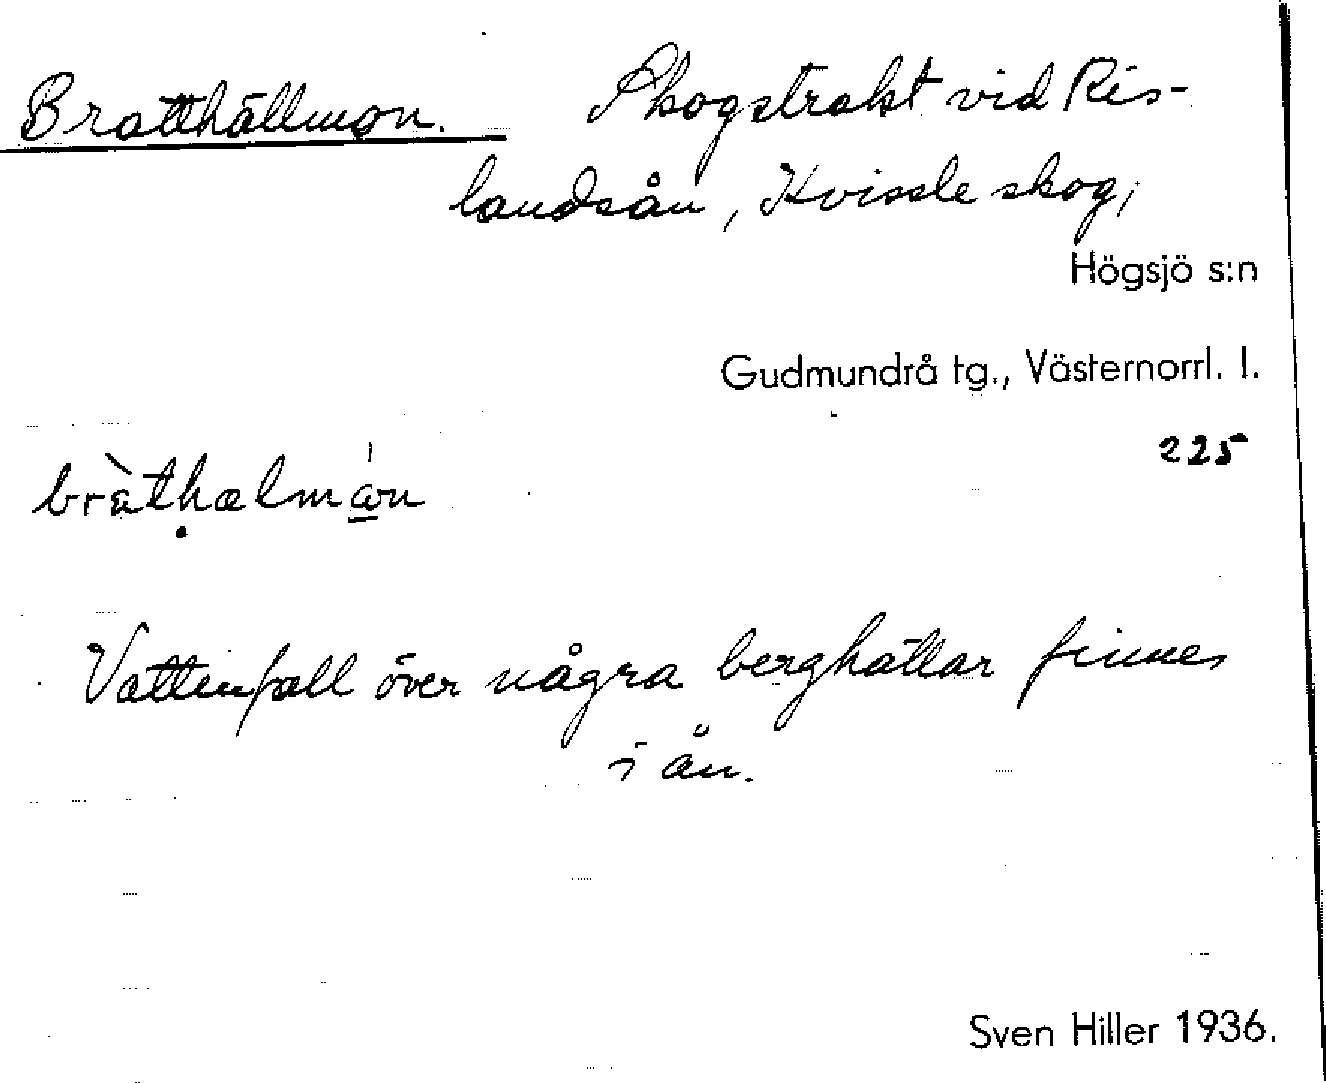 Bratthällmon. Skogstrakt vid Ris-
landsån, Kvissle skog,
Högsjö s:n
Gudmundrå tg., Västernorrl. l.
225
bràt̩hælmώ̲n
Vattenfall över några berghällar finnes
i ån.
Sven Hiller 1936.